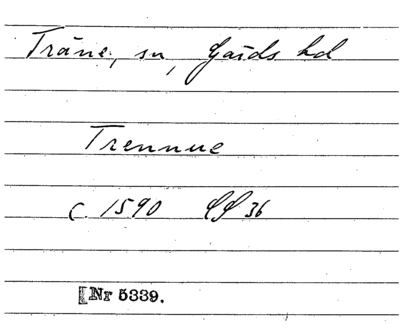 Träne, sn, Gärds hd
Trennue
c. 1590 SS 36
[Nr 5339.